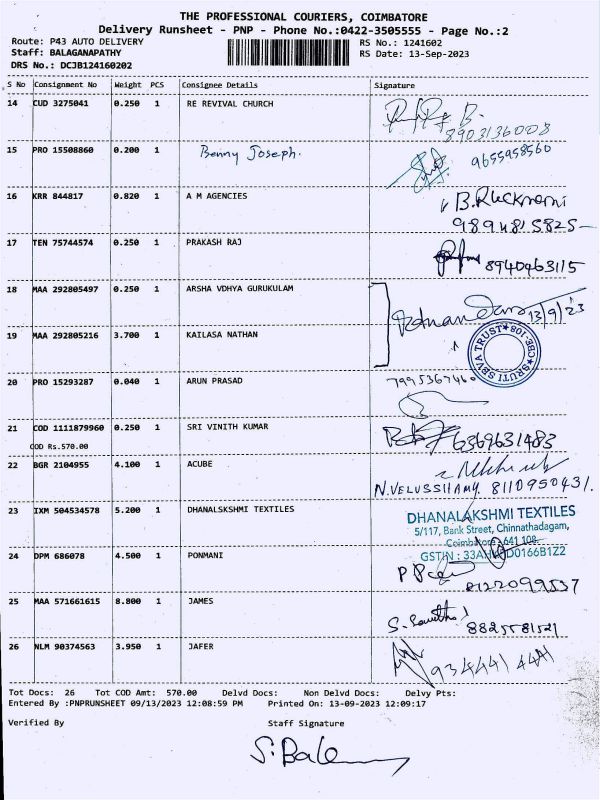 THE PROFESSIONAL COURIERS, COIMBATORE
Delivery Runsheet - PNP - Phone No.:0422-3505555 - Page No.:2
Route: P43 AUTO DELIVERY RS No.: 1241602
Staff: BALAGANAPATHY RS Date: 13-Sep-2023
DRS No.: DCJB124160202
S No Consignment No Weight PCS Consignee Details Signature
14 CUD 3275041 0.250 1 RE REVIVAL CHURCH
8903136008
15 PRO 15508860 0.200 1 Benny Joseph. 9655958560
16 KRR 844817 0.820 1 A M AGENCIES B.Rukmani
9894815825
17 TEN 75744574 0.250 1 PRAKASH RAJ 8940463115
18 MAA 292805497 0.250 1 ARSHA VDHYA GURUKULAM 13/9/23
19 MAA 292805216 3.700 1 KAILASA NATHAN SRUTI SEVA TRUST CBE-108
20 PRO 15293287 0.040 1 ARUN PRASAD 7995367460
21 COD 1111879960 0.250 1 SRI VINITH KUMAR 6369631483
COD Rs.570.00
22 BGR 2104955 4.100 1 ACUBE
N.VELUSSHAMY. 8110950431.
23 IXM 504534578 5.200 1 DHANALSKSHMI TEXTILES DHANALAKSHMI TEXTILES
5/117, Bank Street, Chinnathadagam,
Coimbatore - 641 108.
GSTIN : 33A D0166B1Z2
24 DPM 686078 4.500 1 PONMANI 8122099537
25 MAA 571661615 8.800 1 JAMES 8825581521
26 NLM 90374563 3.950 1 JAFER 934441 4441
Tot Docs: 26 Tot COD Amt: 570.00 Delvd Docs: Non Delvd Docs: Delvy Pts:
Entered By :PNPRUNSHEET 09/13/2023 12:08:59 PM Printed On: 13-09-2023 12:09:17
Verified By Staff Signature
S.Bale